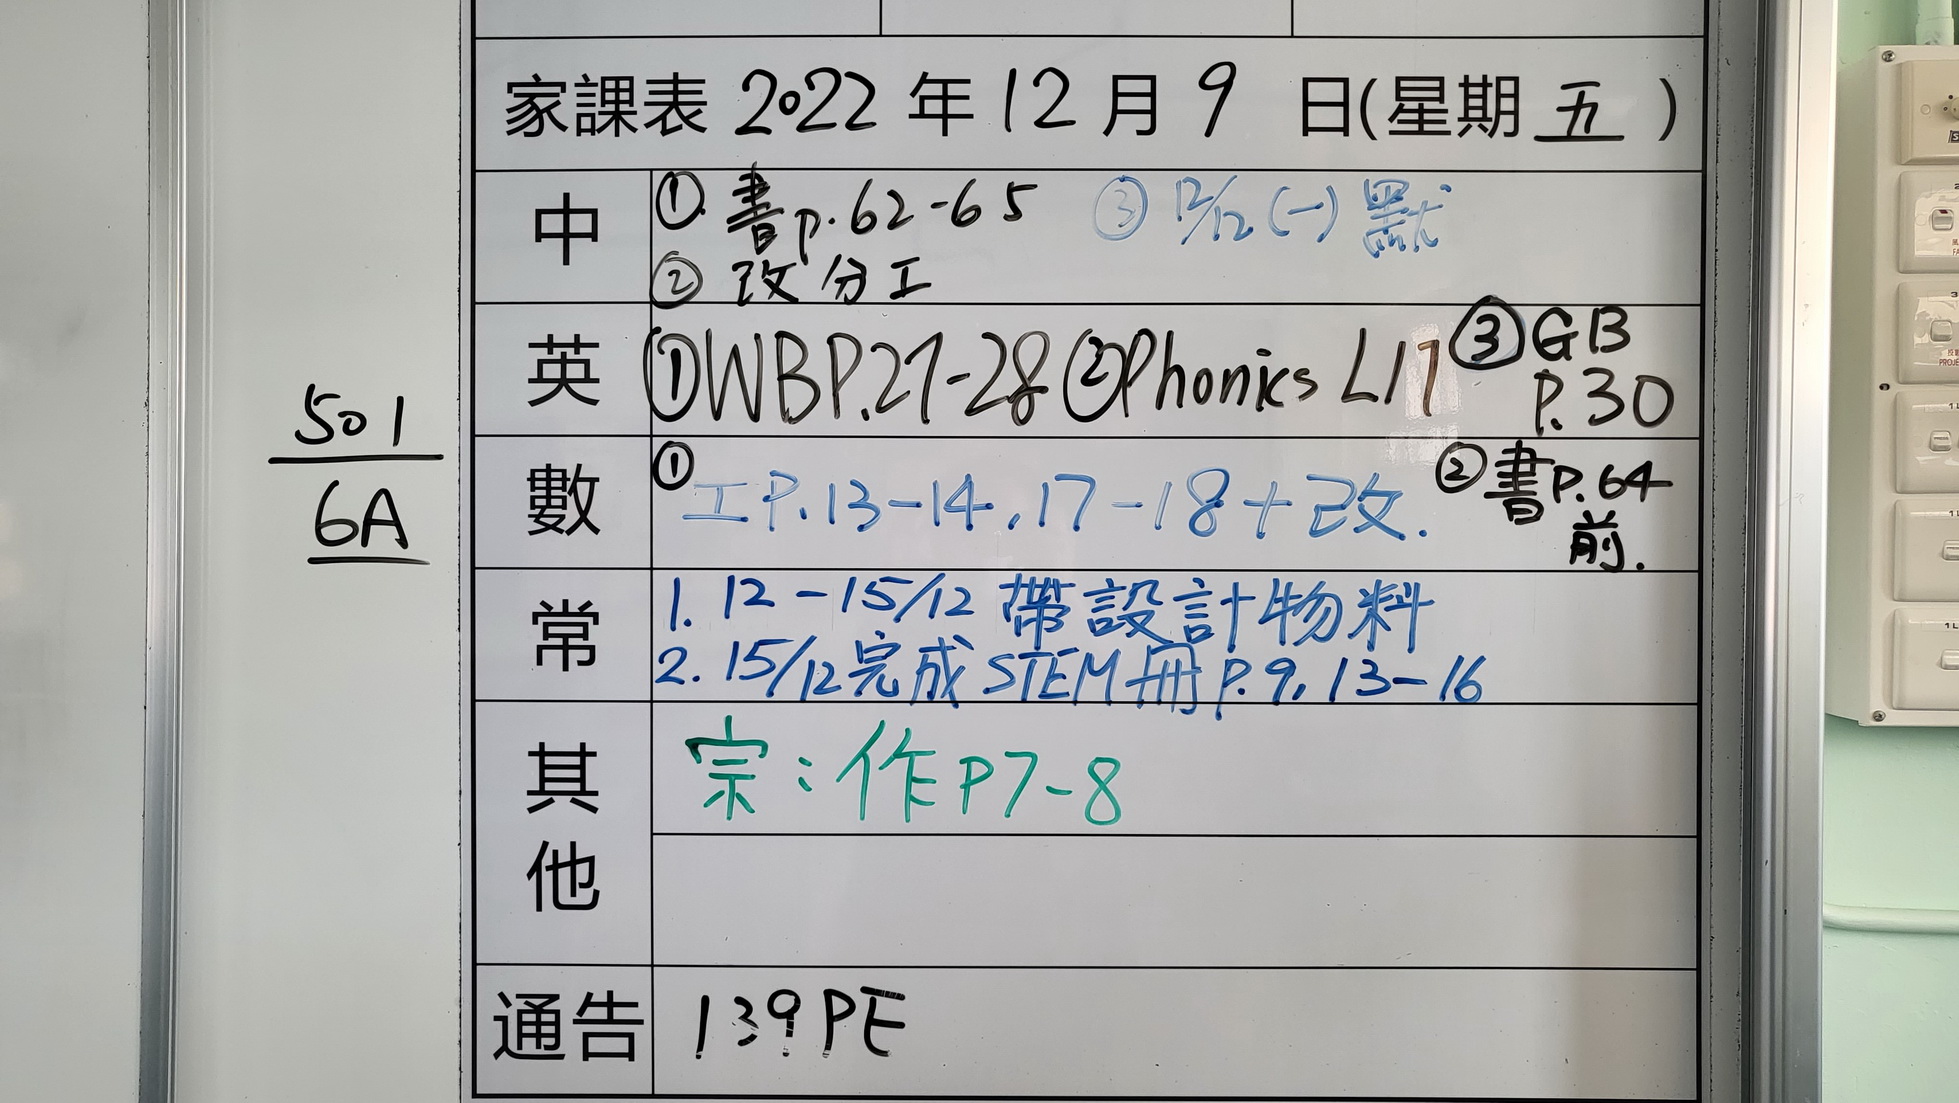 家課表 2022 年 12 月 9 日(星期 五 )
501
6A
中
① 書p.62-65 ③ 12/12 (一) 默
② 改分工
英
①WBP.27-28 ②Phonics L17 ③GB
P.30
數
① 工P.13-14, 17-18+改. ②書P.64
前.
常
1. 12-15/12 帶設計物料
2. 15/12完成STEM冊P.9, 13-16
其他
宗:作P7-8
通告
139PE